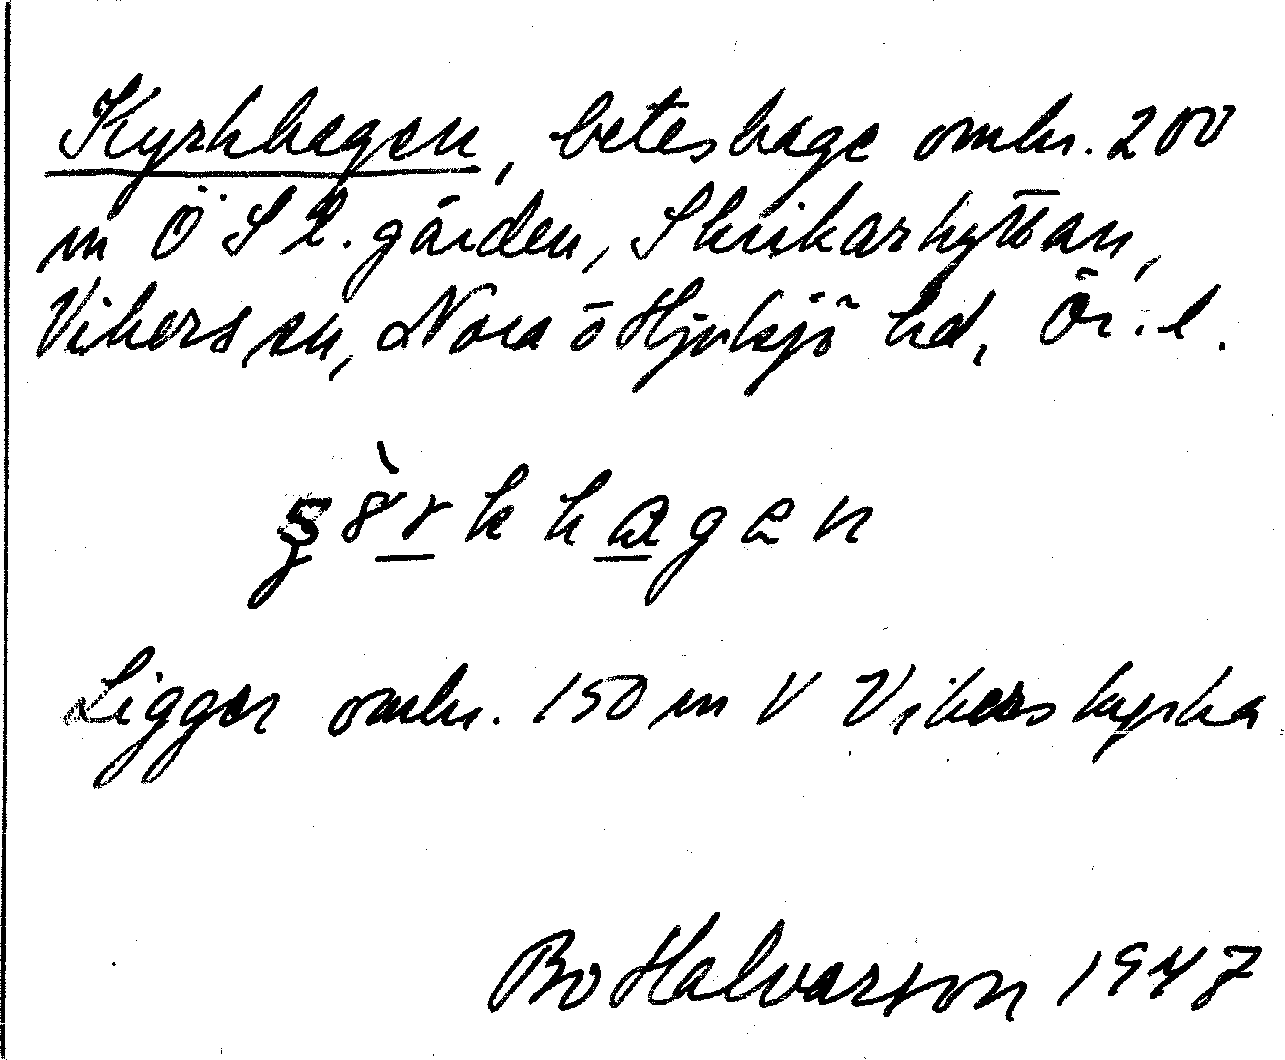 Kyrkhagen, beteshage omkr. 200
m Ö S L. gården, Skrikarhyttan,
Vikers sn, Nora o Hjulsjö hd, Ör. l.
k h a g e n
Ligger omkr. 150 m V Vikers kyrka
Bo Halvarson 1947